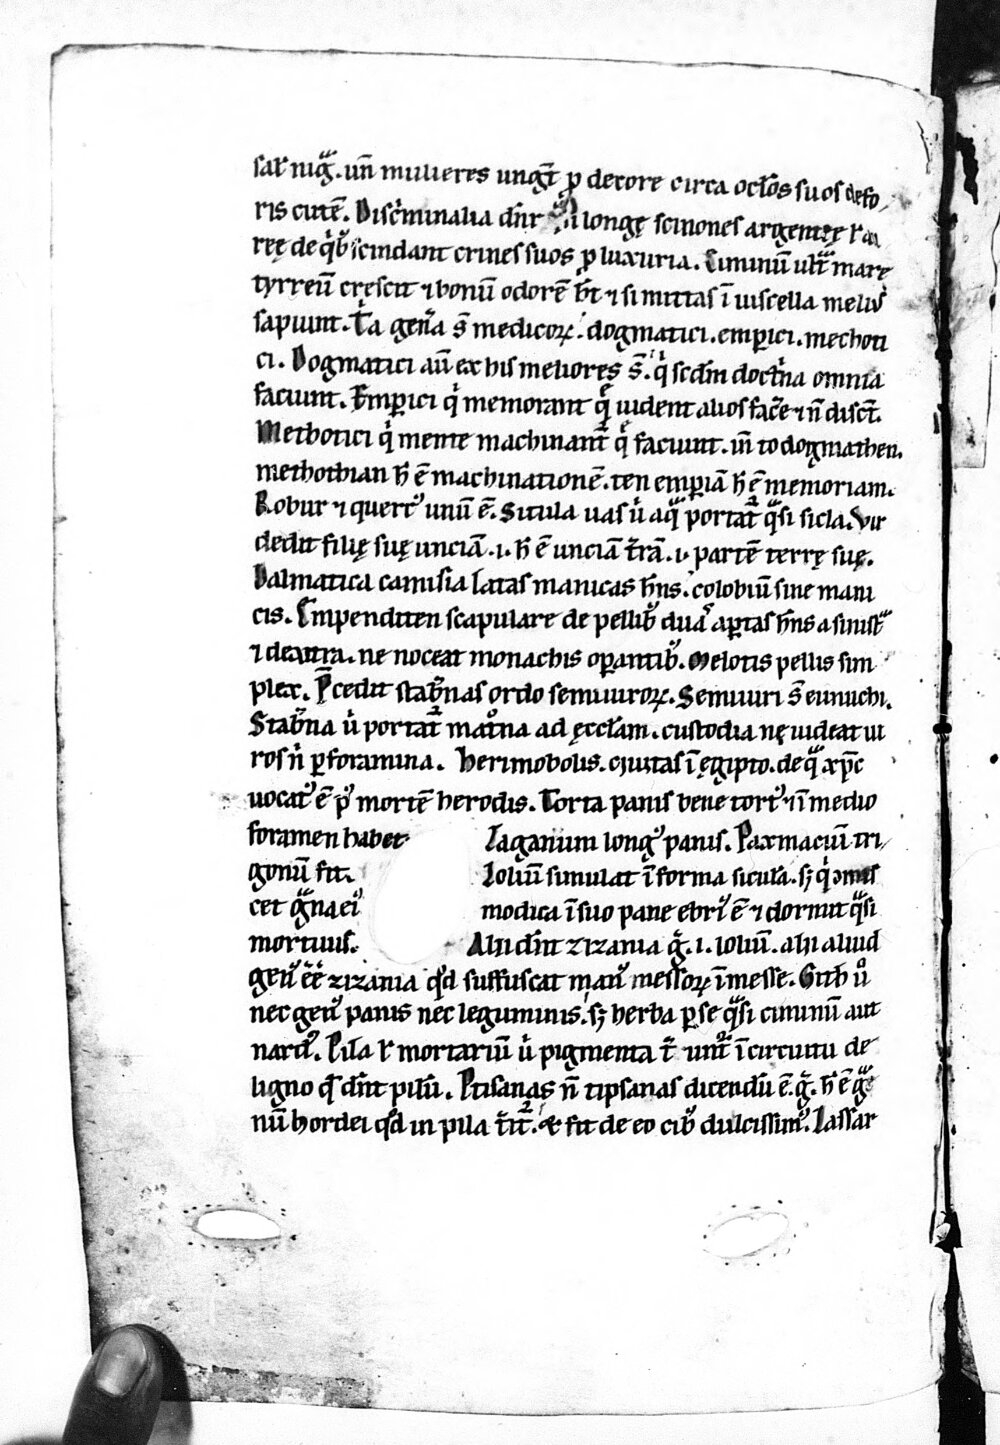 sat nig̃. un̄ mulieres ungt̄ ꝓ decore circa oc̄los suos defo
ris cutē. Discͥminalia dn̄r longę scinones argenteę ł au
reę de qͥbꝰ scindant crines suos ꝓ luxuria. Ciminū ult̄ mare
tyrreū crescit ⁊ bonū odorē hꝫ ⁊ si mittas ī uiscella meliꝰ
sapiunt. Tͥa geña s̄ medicoꝝ. dogmatici. emꝑici. mechoti
ci. Dogmatici aū ex his meliores s̄. qͥ scd̄m doctͥna omnia
faciunt. Emꝑici qͥ memorant q̄ uident alios fac̄e ⁊ n̄ disct̄.
Methotici qͥ mente machinant̄ q̄ faciunt. un̄ to dogmathen.
methothian h̄ ē machinationē. ten emꝑiā h̄ ē memoriam.
Robur ⁊ quercꝰ unū ē. Situla uas ū aqᷓ portat̄ qᷓsi sicla. Vir
dedit filię suę unciā .i. h̄ ē unciā t̄rā .i. partē terrę suę.
Dalmatica camisia latas manicas hn̄s. colobiū sine mani
cis. Empenditen scapulare de pellibꝰ duaꝰ aꝑtas hn̄s a sinistᷓ
⁊ dextra. ne noceat monachis oꝑantibꝰ. Melotis pellis sim
plex. P̄cedit stabͥnas ordo semiuiroꝝ. Semiuiri s̄ eunuchi.
Stabͥna ū portat̄ matͦna ad ęcclam. custodia nę uideat ui
ros n̄ ꝑ foramina. Herimobolis. ciuitas ī ęgipto. de qᷓ xp̄c
uocatꝰ ē p̄ mortē herodis. Torta panis bene tortꝰ ⁊ ī medio
foramen habet Laganum longꝰ panis. Paxmaciū tri
gonū fit. Loliū simulat ī forma sicula. sꝫ
cet gᷓna eiꝰ modica ī suo pane ebriꝰ ē ⁊ dormit qᷓsi
mortuus. Alii dn̄t zizania g̃. i. loliū. alii aliud
genꝰ ēē zizania qd̄ suffuscat manꝰ messoꝝ ī messe. Gith ū
nec genꝰ panis nec leguminis. sꝫ herba ꝑ se qᷓsi cininū aut
nardꝰ. Pila ł mortariū ū pigmenta t̄ unt̄ ī circuitu de
ligno q̄ dn̄t pilū. Ptisanas n̄ tipsanas dicendū ē. g̃. h̄ ē gᷓ
nū hordei qd̄ in pila t̄it̄. & fit de eo cibꝰ dulcissimꝰ. Lassar